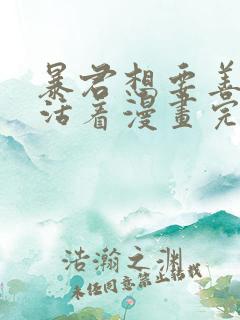 暴君想要善
活着漫畫完
浩瀚之渊
未经同意禁止转载